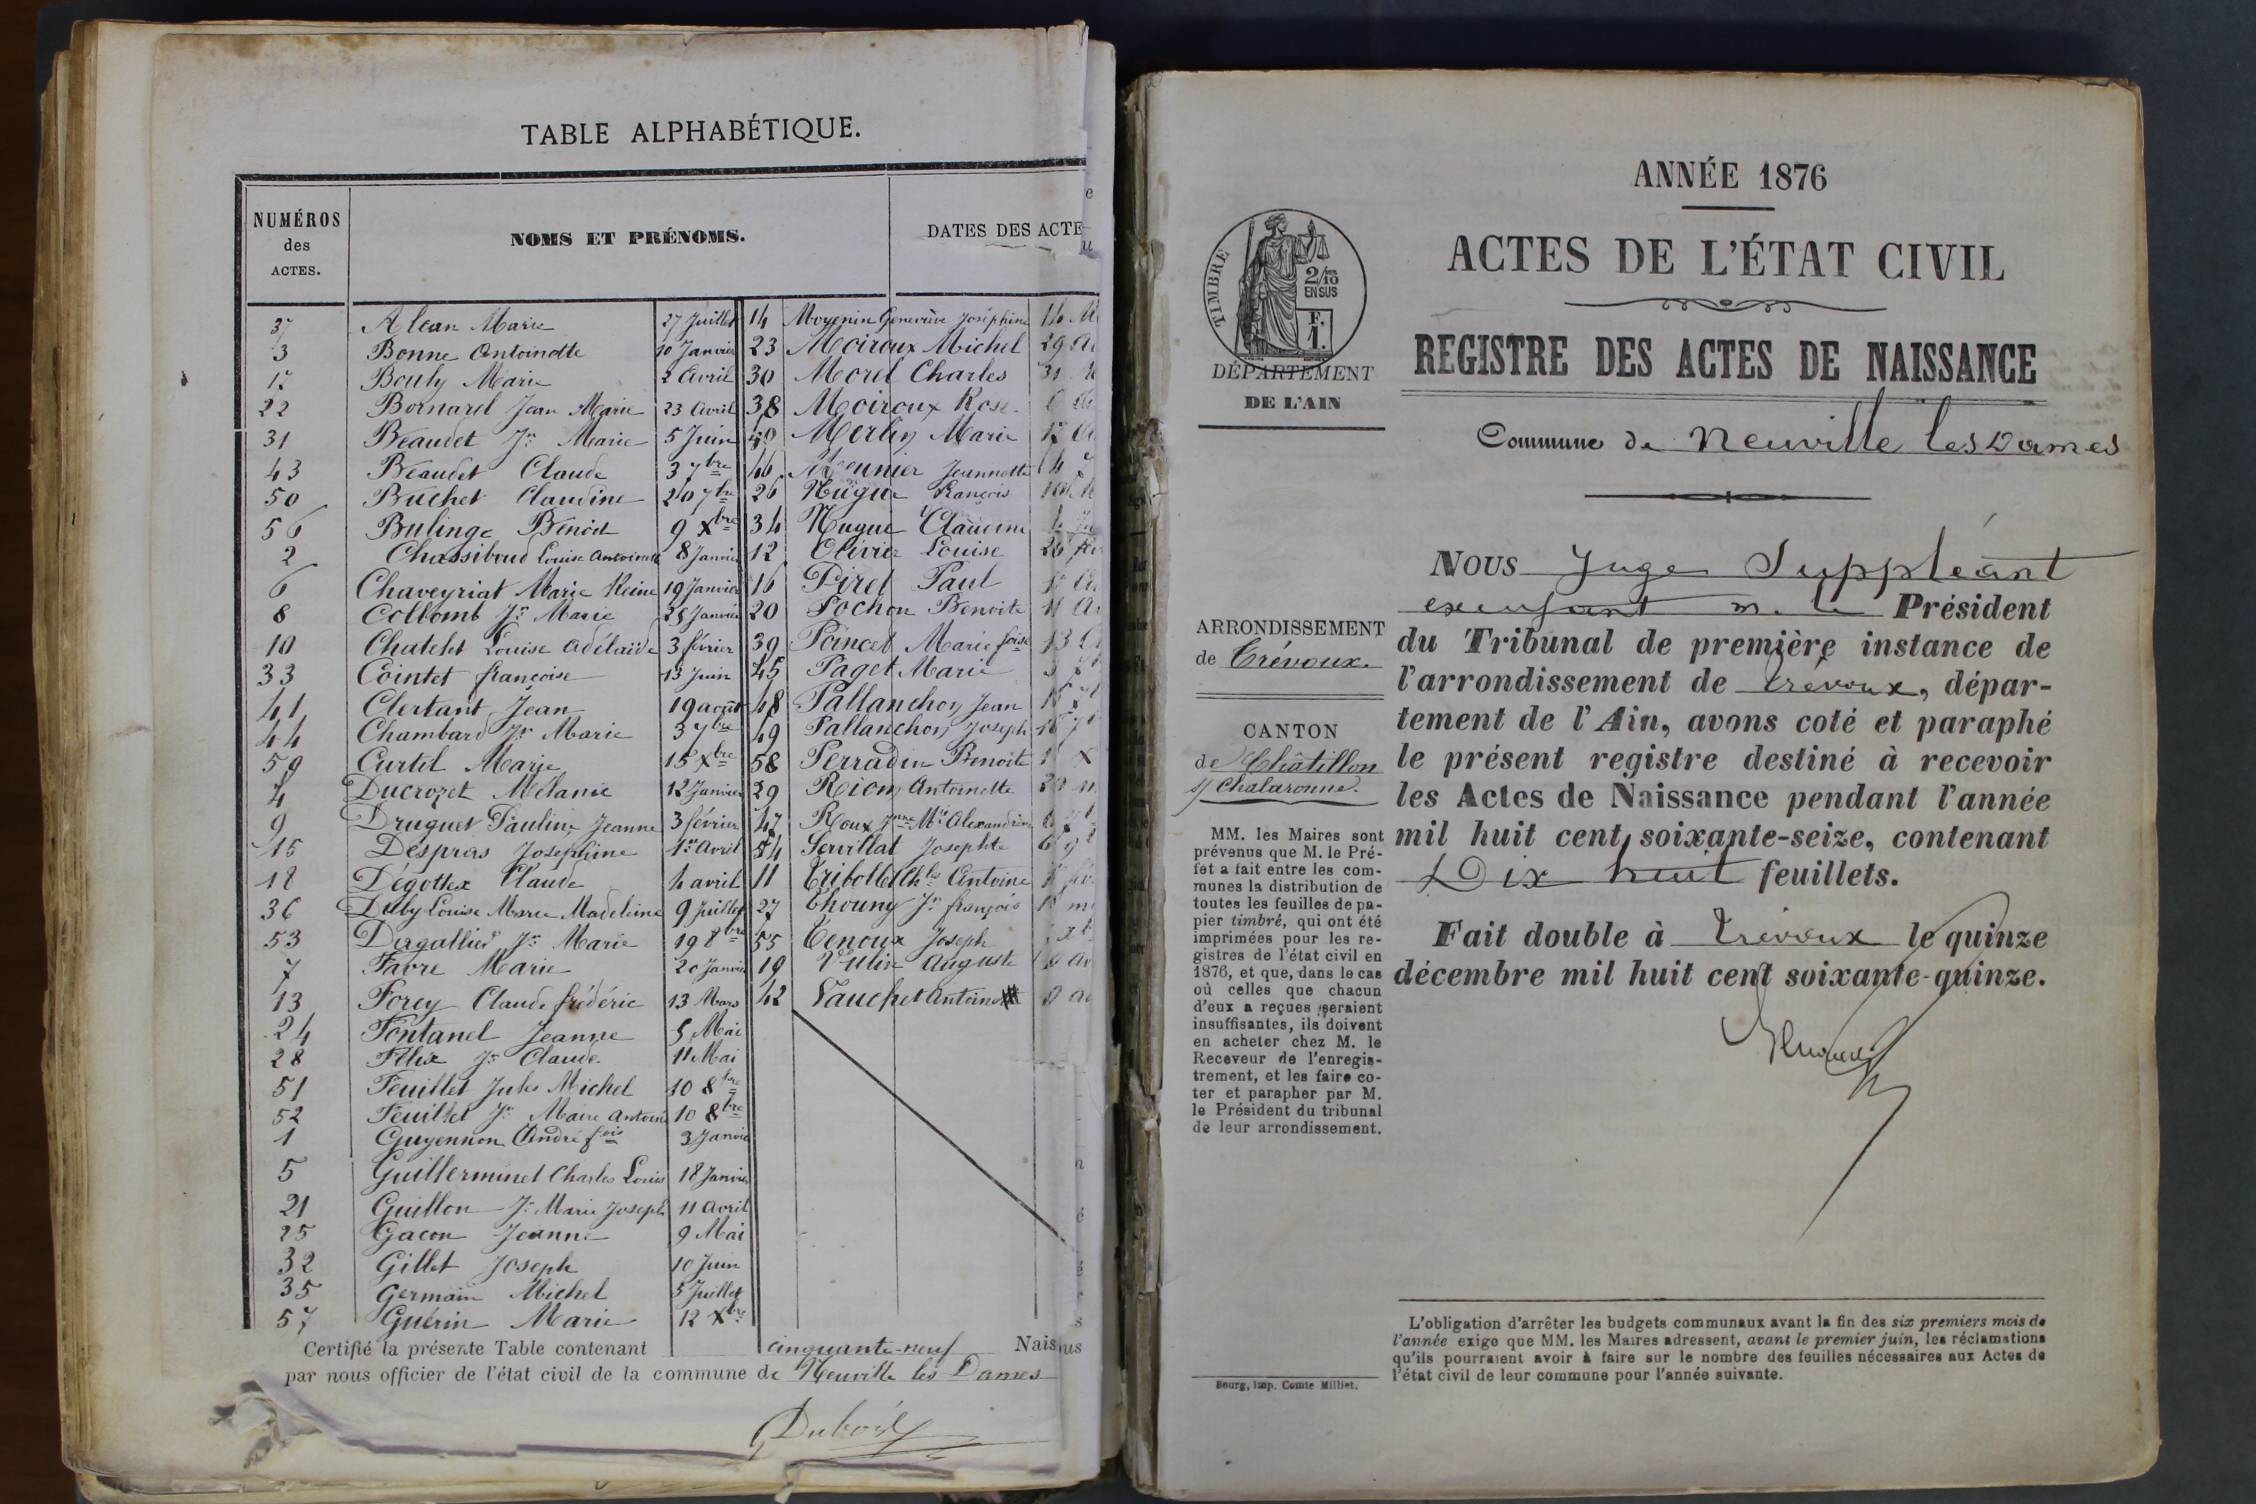 TABLE ALPHABÉTIQUE.
NUMÉROS des ACTES. NOMS ET PRÉNOMS. DATES DES ACTE
37 Alean Marie 27 Juillet 14 Moyenin Geneviève Joséphine 14 M
3 Bonne Antoinette 10 Janvier 23 Moiroux Michel 29 A
17 Bouly Marie 2 Avril 30 Morel Charles 31
22 Bornarel Jean Marie 23 Avril 38 Moiroux Rose
31 Beaudet Jn Marie 5 Juin 40 Merlin Marie 17
43 Beaudet Claude 3 7bre 46 Meunier Jeannette 4
50 Buchet Claudine 20 7bre 26 Nugue François
56 Bulinge Benoit 9 Xbre 34 Nugue
2 Chassiboud Louise Antoinette 8 Janvier 12 Olivier Louise 26 fév
6 Chaveyriat Marie Reine 19 Janvier 16 Piret Paul
8 Collomb Jn Marie 25 Janvier 20 Pochon Benoite 11 A
10 Chatelet Louise Adélaïde 3 février 39 Poincet Marie foise 13
33 Cointet françoise 13 Juin 45 Paget Marie 3
41 Clertant Jean 19 août 48 Pallanchon Jean 15
44 Chambard Jn Marie 3 7bre 49 Pallanchon Joseph
59 Curtil Marie 15 Xbre 58 Perradin Benoite
4 Ducrozet Mélanie 12 Janvier 29 Rion Antoinette
9 Druguet Pauline Jeanne 3 février 47 Roux Jnne Mie Alexandrine
15 Despras Joséphine 1er Avril 54 Servillat Josephte
18 Dégottex Claude 4 avril 11 Tribollet Chles Antoine
36 Duby Louise Marie Madeleine 9 Juillet 27 Thouny Jn françois
53 Dagallier Jn Marie 19 8bre 55 Tenoux Joseph
7 Favre Marie 20 Janvier 19 Vulin Auguste
13 Forey Claude frédéric 13 Mars 42 Vauchet Antoine
24 Fontanel Jeanne 5 Mai
28 Félix Jn Claude 11 Mai
51 Feuillet Jules Michel 10 8bre
52 Feuillet Jn Marie Antoine 10 8bre
1 Guyennon André fois 3 Janvier
5 Guillerminet Charles Louis 18 Janvier
21 Guillon Jn Marie Joseph 11 Avril
25 Gacon Jeanne 9 Mai
32 Gillet Joseph 10 Juin
35 Germain Michel 5 Juillet
57 Guérin Marie 12 Xbre
Certifié la présente Table contenant cinquante-neuf Nais
par nous officier de l'état civil de la commune de Neuville les Dames
Dubost
ANNÉE 1876
ACTES DE L'ÉTAT CIVIL
TIMBRE
2/10
EN SUS
F.
1.
REGISTRE DES ACTES DE NAISSANCE
DÉPARTEMENT
DE L'AIN
Commune de Neuville les Dames
Nous Juge Suppléant
Président
du Tribunal de première instance de
l'arrondissement de Trévoux, dépar-
tement de l'Ain, avons coté et paraphé
le présent registre destiné à recevoir
les Actes de Naissance pendant l'année
mil huit cent soixante-seize, contenant
Dix huit feuillets.
Fait double à Trévoux le quinze
décembre mil huit cent soixante-quinze.
ARRONDISSEMENT
de Trévoux.
CANTON
de Châtillon
s/ Chalaronne.
MM. les Maires sont
prévenus que M. le Pré-
fet a fait entre les com-
munes la distribution de
toutes les feuilles de pa-
pier timbré, qui ont été
imprimées pour les re-
gistres de l'état civil en
1876, et que, dans le cas
où celles que chacun
d'eux a reçues seraient
insuffisantes, ils doivent
en acheter chez M. le
Receveur de l'enregis-
trement, et les faire co-
ter et parapher par M.
le Président du tribunal
de leur arrondissement.
L'obligation d'arrêter les budgets communaux avant la fin des six premiers mois de
l'année exige que MM. les Maires adressent, avant le premier juin, les réclamations
qu'ils pourraient avoir à faire sur le nombre des feuilles nécessaires aux Actes de
l'état civil de leur commune pour l'année suivante.
Bourg, imp. Comte Milliet.